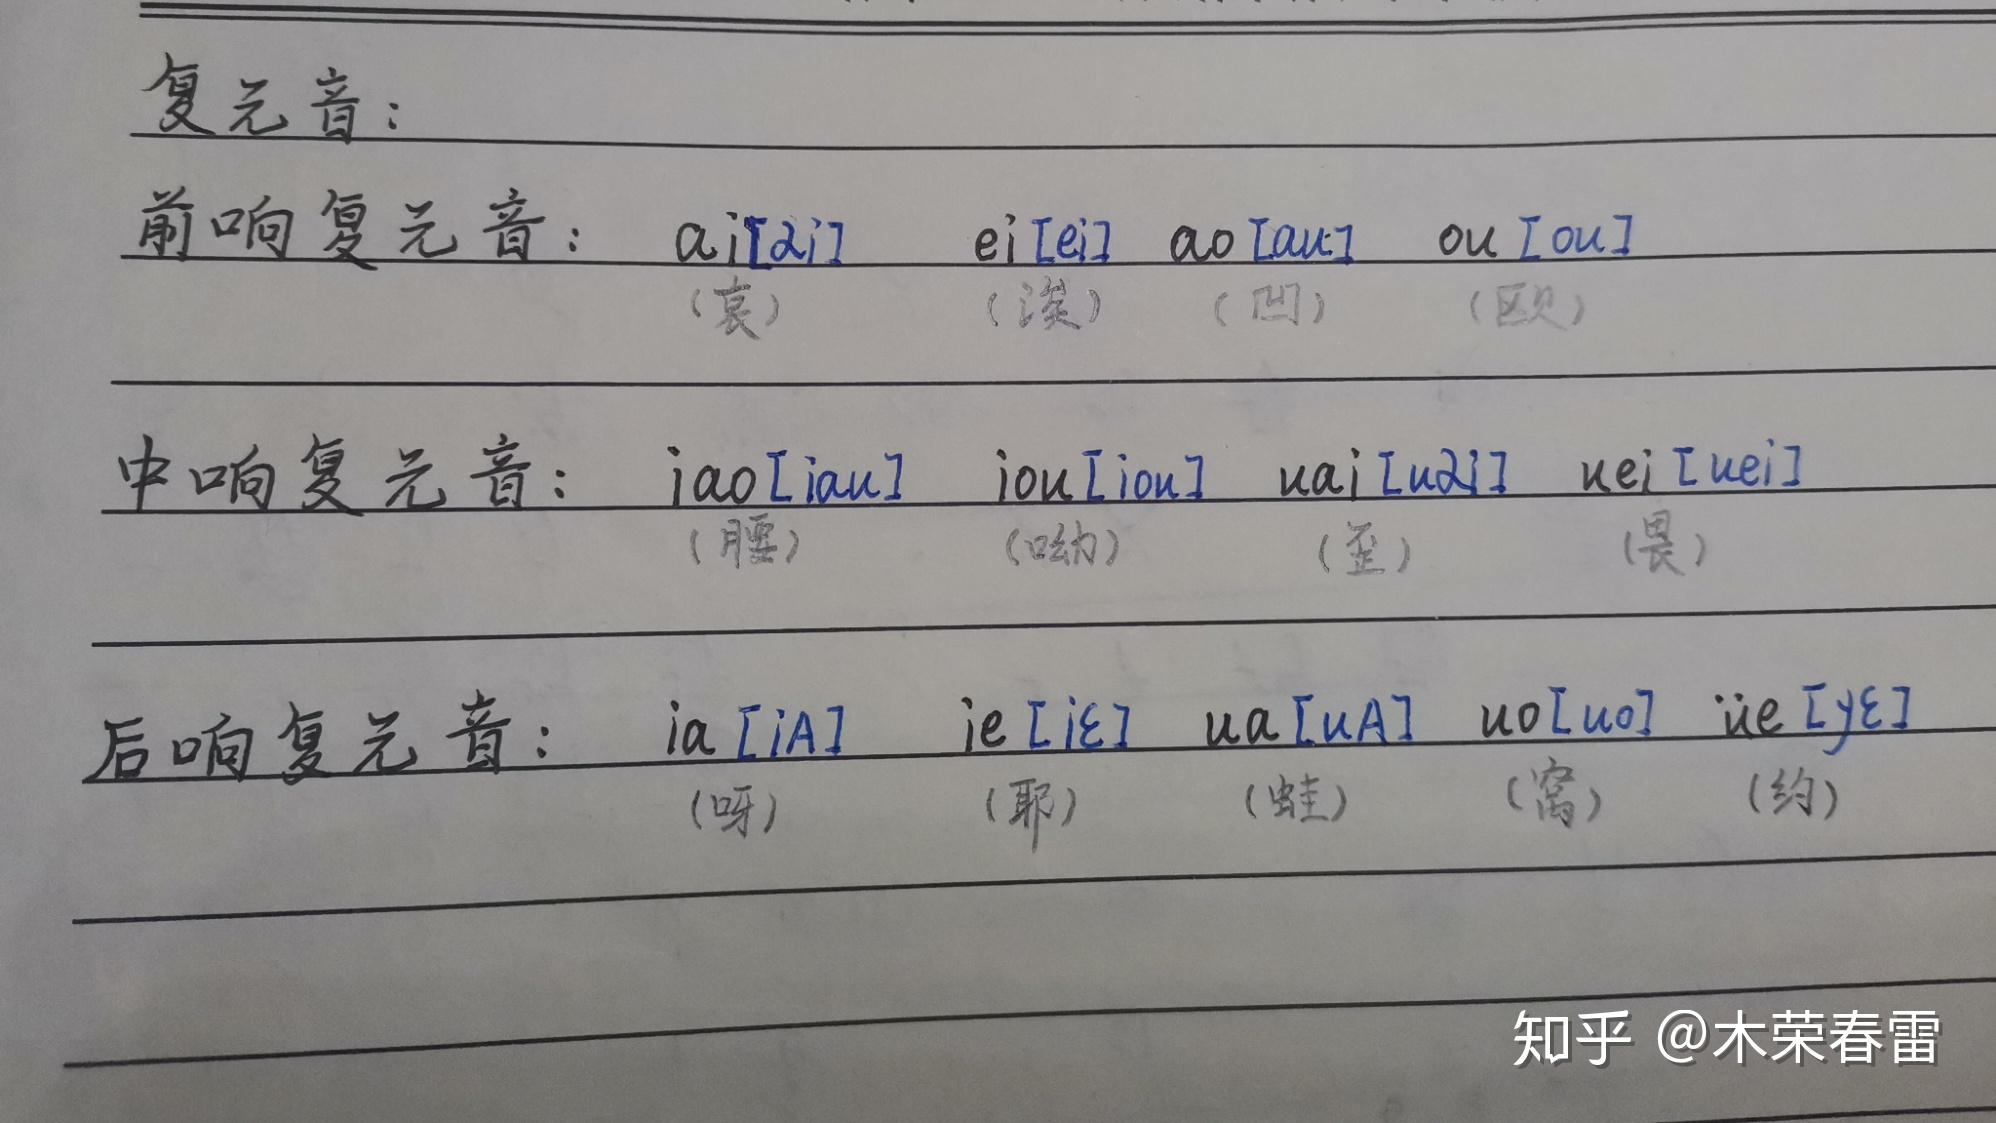 复元音：
前响复元音： ai[ai] ei[ei] ao[ɑu] ou[ou]
（哀） （诶） （凹） （欧）
中响复元音： iao[iɑu] iou[iou] uai[uai] uei[uei]
（腰） （呦） （歪） （畏）
后响复元音： ia[iA] ie[iɛ] ua[uA] uo[uo] üe[yɛ]
（呀） （耶） （蛙） （窝） （约）
知乎 @木荣春雷